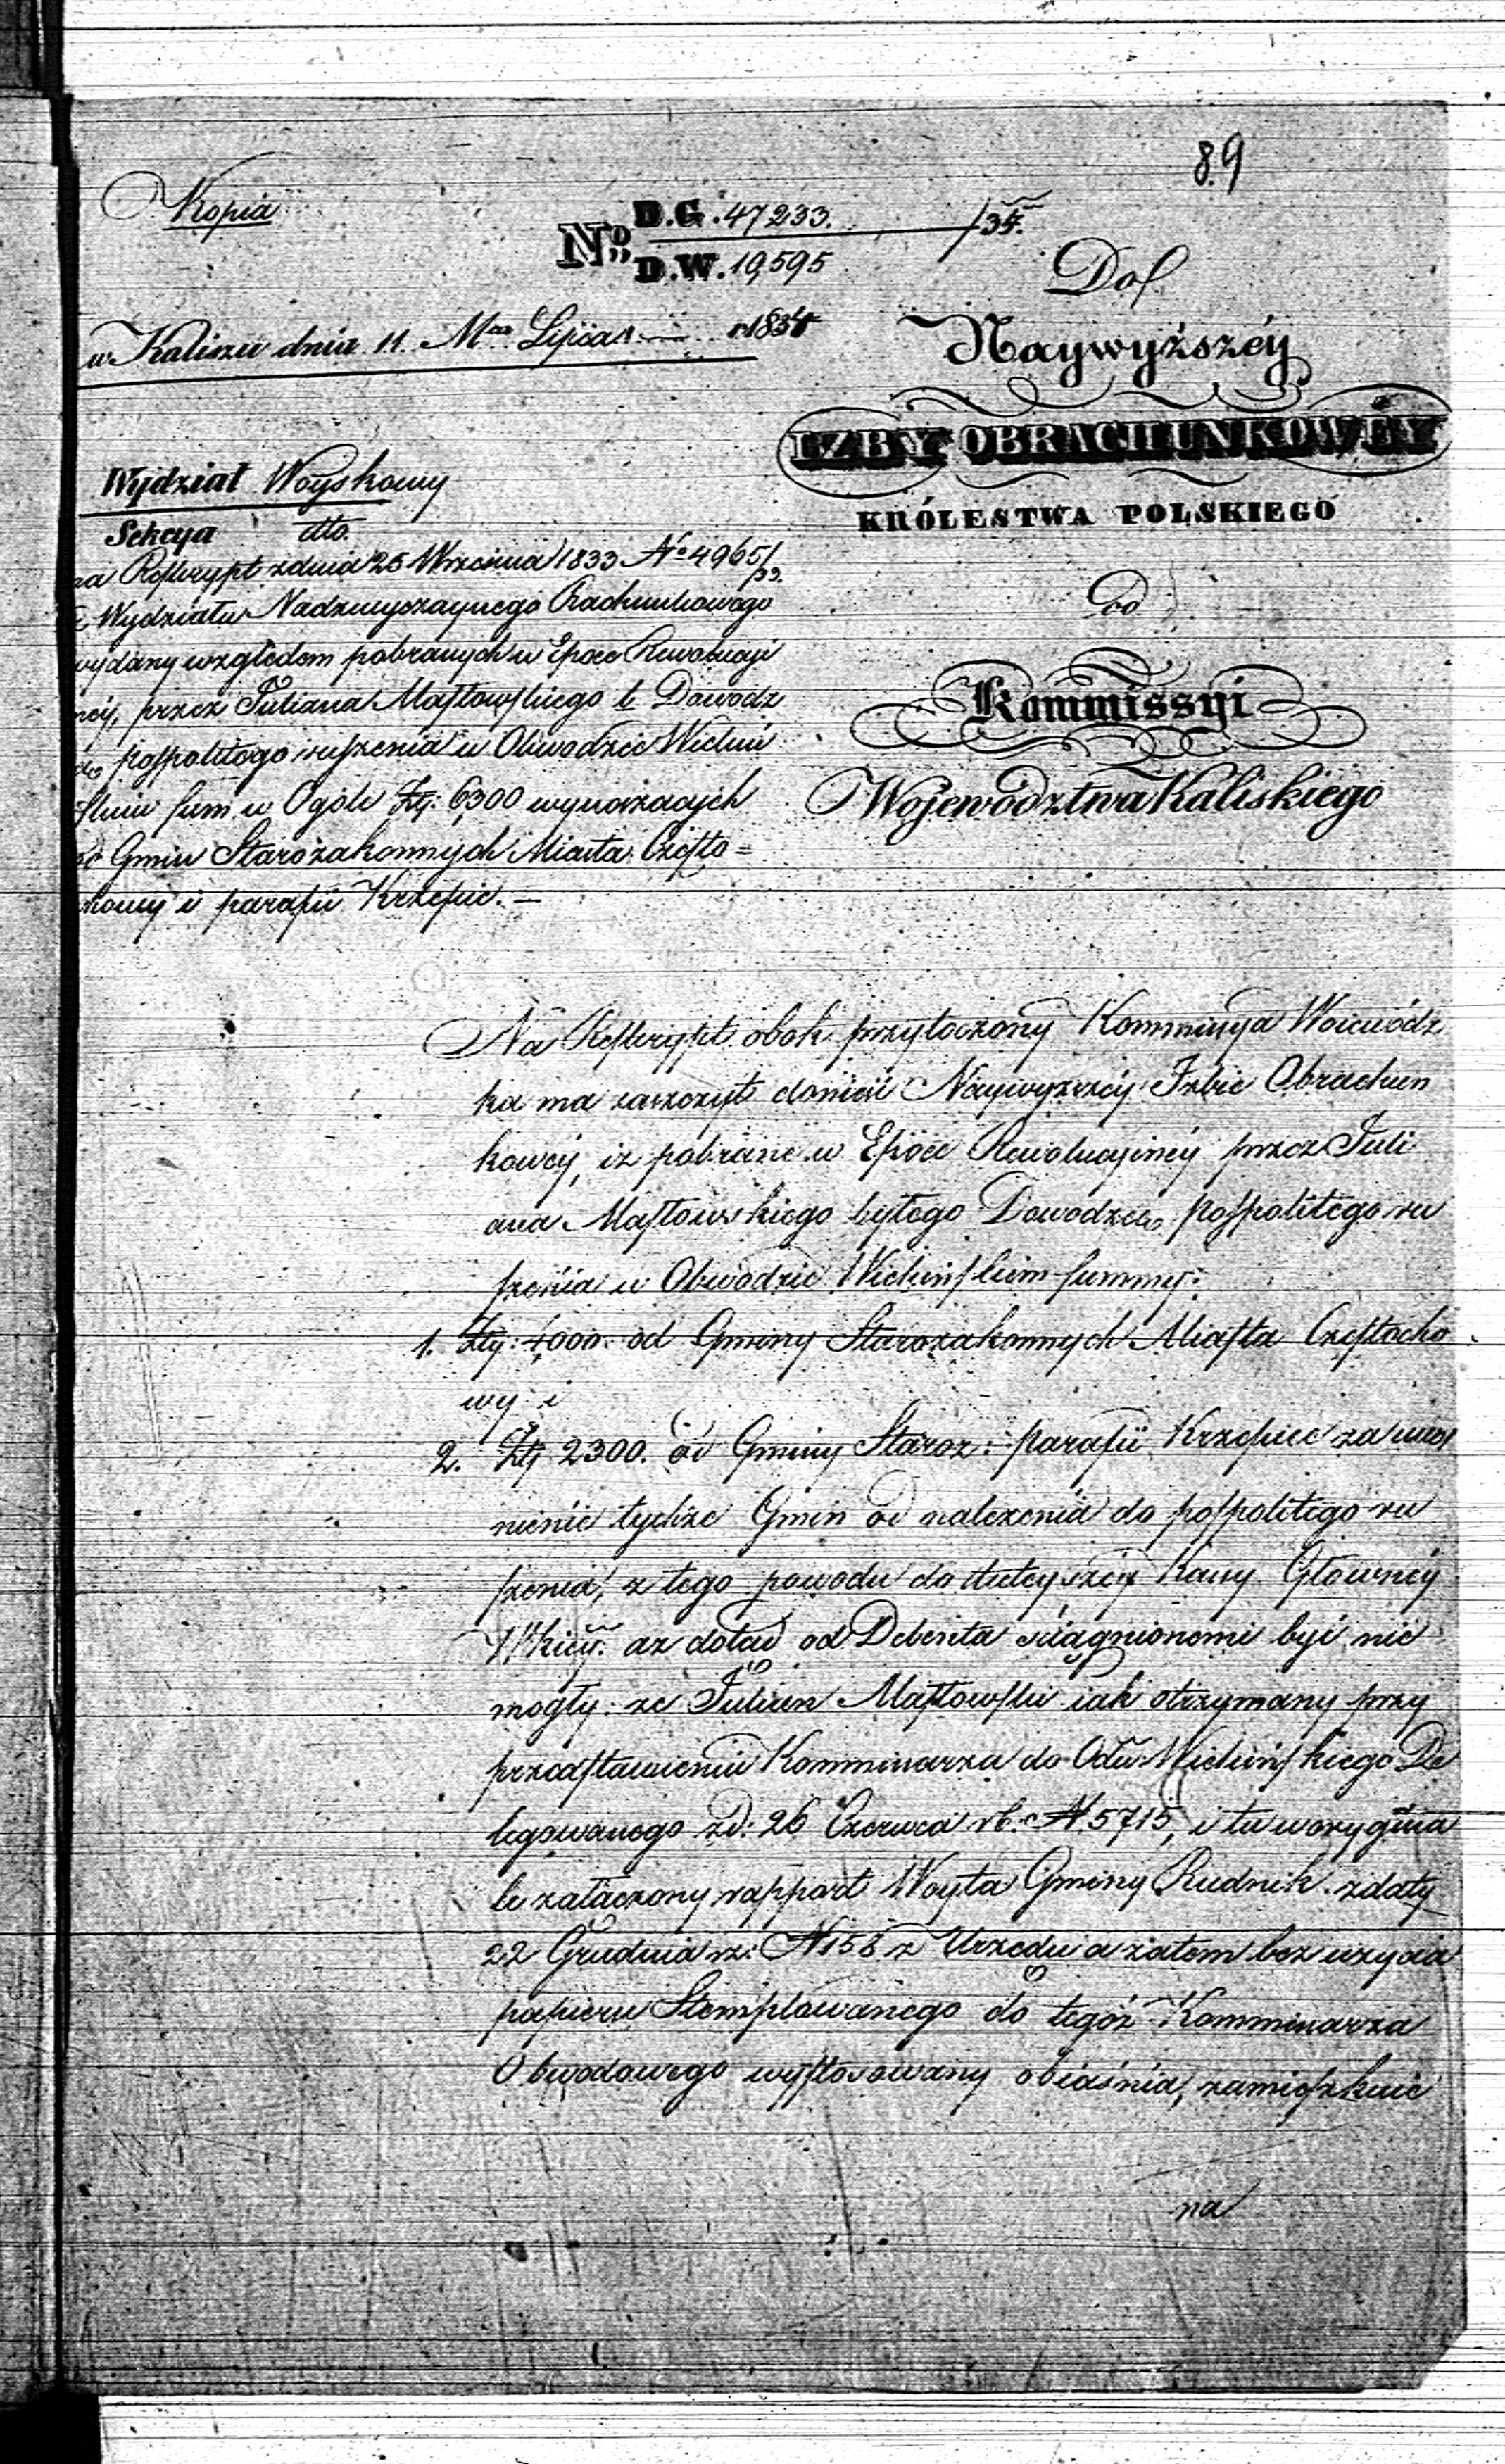 89
Kopia
No D.G. 47233. /34.
D.W. 19,595
w Kaliszu dnia 11. Mca Lipca r. 1834
Do
Naywyższéy
IZBY OBRACHUNKOWÉY
KRÓLESTWA POLSKIEGO
Od
Kommissyi
Województwa Kaliskiego
Wydział Woyskowy
Sekcya dto.
na Reskrypt z dnia 25 Września 1833 No 4965/33.
z Wydziału Nadzwyczaynego Rachunkowego
wydany względem pobranych w Epoce Rewolucyi
néy, przez Juliana Masłowskiego b. Dowódz
pospolitego ruszenia w Obwodzie Wieluń
skim sum w Ogóle Złp: 6300 wynoszących
od Gmin Starozakonnych Miasta Często=
chowy i parafii Krzepic. —
Na Reskrypt obok przytoczony Kommissya Woiewódz
ka ma zaszczyt donieść Naywyższéy Izbie Obrachun
kowéy, iż pobrane w Epoce Rewolucyinéy przez Juli
ana Masłowskiego byłego Dowódzcę pospolitego ru
szenia w Obwodzie Wieluńskim summy:
1. Złp: 4,000. od Gminy Starozakonnych Miasta Częstocho
wy i
2. Złp 2300. od Gminy Staroz: parafii Krzepice za uwol
nienie tychże Gmin od należenia do pospolitego ru
szenia, z tego powodu do tuteyszéy Kassy Głównéy
Wkiéy. aż dotąd od Debenta ściągnionemi być nie
mogły: że Julian Masłowski iak otrzymany przy
przedstawieniu Kommissarza do Obdu Wieluńskiego De
legowanego z d: 26 Czerwca rb. N. 5715, i tu w orygina
le załączony rapport Woyta Gminy Rudnik z daty
22 Grudnia rz: N 158 z Urzędu a zatem bez użycia
papieru Stemplowanego do tegóż Kommissarza
Obwodowego wystosowany obiaśnia, zamieszkuie
na